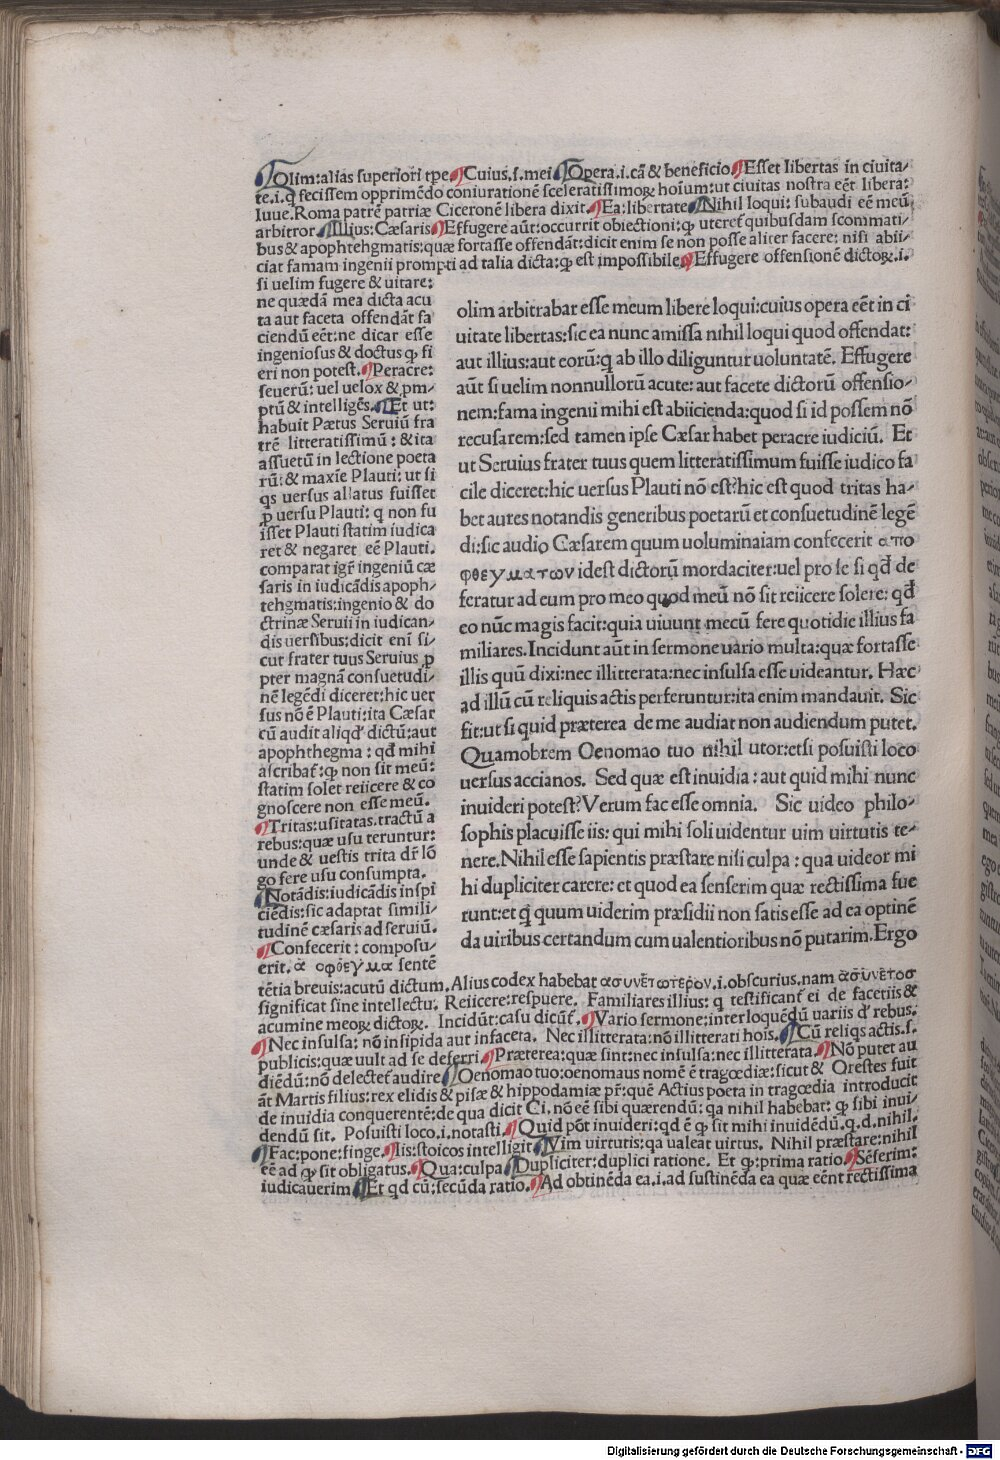 Olim:alias superiori tꝑe Cuius.s.mei Opera.i.cā & beneficio Esset libertas in ciuita-
te.i.q̃ fecissem opprimēdo coniurationē sceleratissimoꝝ hoīum:ut ciuitas nostra eēt libera:
Iuue.Roma patrē patriæ Ciceronē libera dixit. Ea:libertate Nihil loqui: subaudi eē meū
arbitror Illius:Cæsaris Effugere aūt:occurrit obiectioni:ꝙ uteret̃ quibusdam scommati-
bus & apophtehgmatis:quæ fortasse offendāt:dicit enim se non posse aliter facere: nisi abii-
ciat famam ingenii prompti ad talia dicta:ꝙ est impossibile Effugere offensionē dictoꝝ.i.
si uelim fugere & uitare:
ne quædā mea dicta acu
ta aut faceta offendāt fa
ciendū eēt:ne dicar esse
ingeniosus & doctus ꝙ fi
eri non potest. Peracre:
seuerū: uel uelox & ꝓm-
ptū & intelligēs. Et ut:
habuit Pætus Seruiū fra
trē litteratissimū : & ita
assuetū in lectione poeta
rū: & maxīe Plauti: ut si
q̄s uersus allatus fuisset
ꝓ uersu Plauti: q̄ non fu
isset Plauti statim iudica
ret & negaret eē Plauti.
comparat igr̃ ingeniū cæ
saris in iudicādis apoph-
tehgmatis:ingenio & do
ctrinæ Seruii in iudican-
dis uersibus:dicit eni si-
cut frater tuus Seruius ꝓ
pter magnā consuetudi-
nē legēdi diceret:hic uer
sus nō ē Plauti:ita Cæsar
cū audit aliqd̕ dictū:aut
apophthegma : qd̕ mihi
ascribat̃: ꝙ non sit meū:
statim solet reiicere & co
gnoscere non esse meū.
Tritas:usitatas.tractū a
rebus:quæ usu teruntur:
unde & uestis trita dr̃ lō
go fere usu consumpta.
Notādis:iudicādis inspi
ciēdis:sic adaptat simili-
tudinē cæsaris ad seruiū.
Confecerit : composu-
erit. α οφθεγμα sentē
olim arbitrabar esse meum libere loqui:cuius opera eēt in ci
uitate libertas:sic ea nunc amissa nihil loqui quod offendat:
aut illius:aut eorū:q̄ ab illo diliguntur uoluntatē. Effugere
aūt si uelim nonnullorū acute: aut facete dictorū offensio-
nem:fama ingenii mihi est abiicienda:quod si id possem nō
recusarem:sed tamen ipse Cæsar habet peracre iudiciū. Et
ut Seruius frater tuus quem litteratissimum fuisse iudico fa
cile diceret:hic uersus Plauti nō est:hic est quod tritas ha-
bet aures notandis generibus poetarū et consuetudinē legē
di:sic audio Cæsarem quum uoluminaiam confecerit απο
φθεγματων idest dictorū mordaciter:uel pro se si qd̕ de
feratur ad eum pro meo quod meū nō sit reiicere solere: qd̕
eo nūc magis facit:quia uiuunt mecū fere quotidie illius fa
miliares. Incidunt aūt in sermone uario multa:quæ fortasse
illis quū dixi:nec illitterata:nec insulsa esse uideantur. Hæc
ad illū cū reliquis actis perferuntur:ita enim mandauit. Sic
fit:ut si quid præterea de me audiat non audiendum putet.
Quamobrem Oenomao tuo nihil utor:etsi posuisti loco
uersus accianos. Sed quæ est inuidia : aut quid mihi nunc
inuideri potest? Verum fac esse omnia. Sic uideo philo-
sophis placuisse iis: qui mihi soli uidentur uim uirtutis te-
nere. Nihil esse sapientis præstare nisi culpa : qua uideor mi
hi dupliciter carere: et quod ea senserim quæ rectissima fue
runt:et q̄ quum uiderim præsidii non satis esse ad ea optinē
da uiribus certandum cum ualentioribus nō putarim.Ergo
tētia breuis:acutū dictum. Alius codex habebat ασυνετωτερον.i.obscurius.nam ασυνετοσ
significat sine intellectu. Reiicere:respuere. Familiares illius: q̄ testificant̃ ei de facetiis &
acumine meoꝝ dictoꝝ. Incidūt:casu dicūt̃. Vario sermone:interloquēdū uariis d̕ rebus.
Nec insulsa: nō insipida aut infaceta. Nec illitterata:nō illitterati hois. Cū reliqs actis.s.
publicis:quæ uult ad se deferri Præterea:quæ sint:nec insulsa:nec illitterata. Nō putet au
diēdū:nō delectet̃ audire Oenomao tuo:oenomaus nomē ē tragœdiæ:sicut & Orestes fuit
āt Martis filius:rex elidis & pisæ & hippodamiæ pr̃:quē Actius poeta in tragœdia introducit
de inuidia conquerentē:de qua dicit Ci.nō eē sibi quærendū: qa nihil habebat: ꝙ sibi inui-
dendū sit. Posuisti loco.i.notasti. Quid pōt inuideri:qd ē ꝙ sit mihi inuidēdū.q.d.nihil.
Fac:pone:finge. Iis:stoicos intelligit Vim uirtutis:qa ualeat uirtus. Nihil præstare:nihil
eē ad ꝙ sit obligatus. Qua:culpa Dupliciter:duplici ratione. Et ꝙ:prima ratio Sēserim:
iudicauerim Et qd cū:secūda ratio. Ad obtinēda ea.i.ad sustinēda ea quæ eēnt rectissima
Digitalisierung gefördert durch die Deutsche Forschungsgemeinschaft - DFG